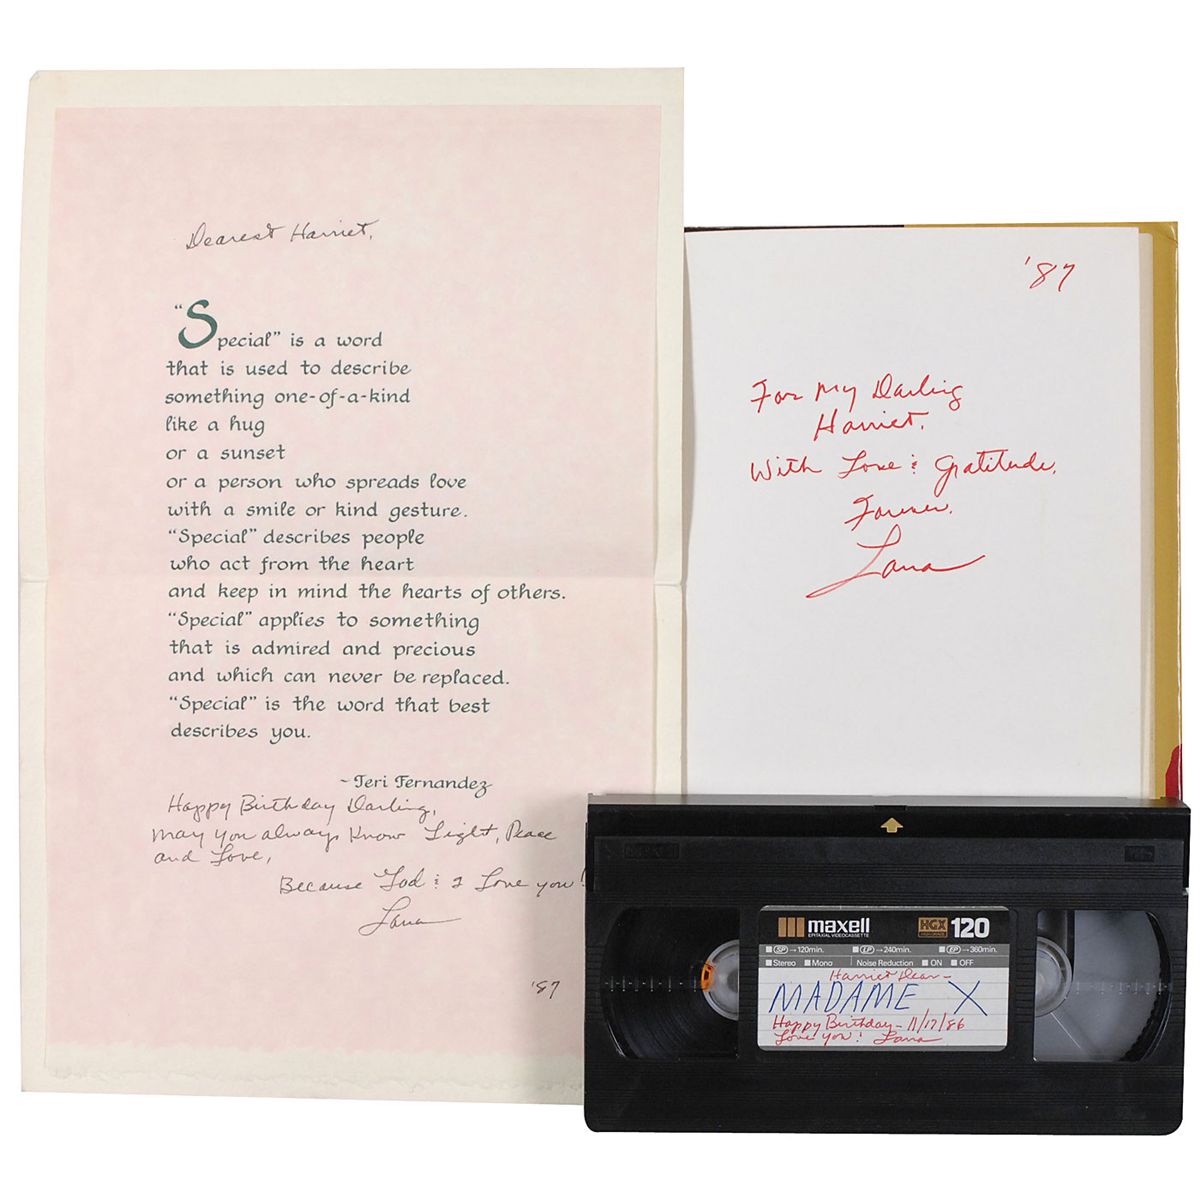 Dearest Harriet,
"Special" is a word
that is used to describe
something one-of-a-kind
like a hug
or a sunset
or a person who spreads love
with a smile or kind gesture.
"Special" describes people
who act from the heart
and keep in mind the hearts of others.
"Special" applies to something
that is admired and precious
and which can never be replaced.
"Special" is the word that best
describes you.
~Teri Fernandez
Happy Birthday Darling,
May you always Know Light, Peace
and Love,
Because God & I Love you!
Lana
'87
'87
For My Darling
Harriet.
With Love & Gratitude,
Forever.
Lana
maxell
EPITAXIAL VIDEOCASSETTE
HGX 120
SP → 120min. LP → 240min. EP → 360min.
Stereo Mono Noise Reduction ON OFF
Harriet Dear -
MADAME X
Happy Birthday - 11/17/86
Love you! Lana